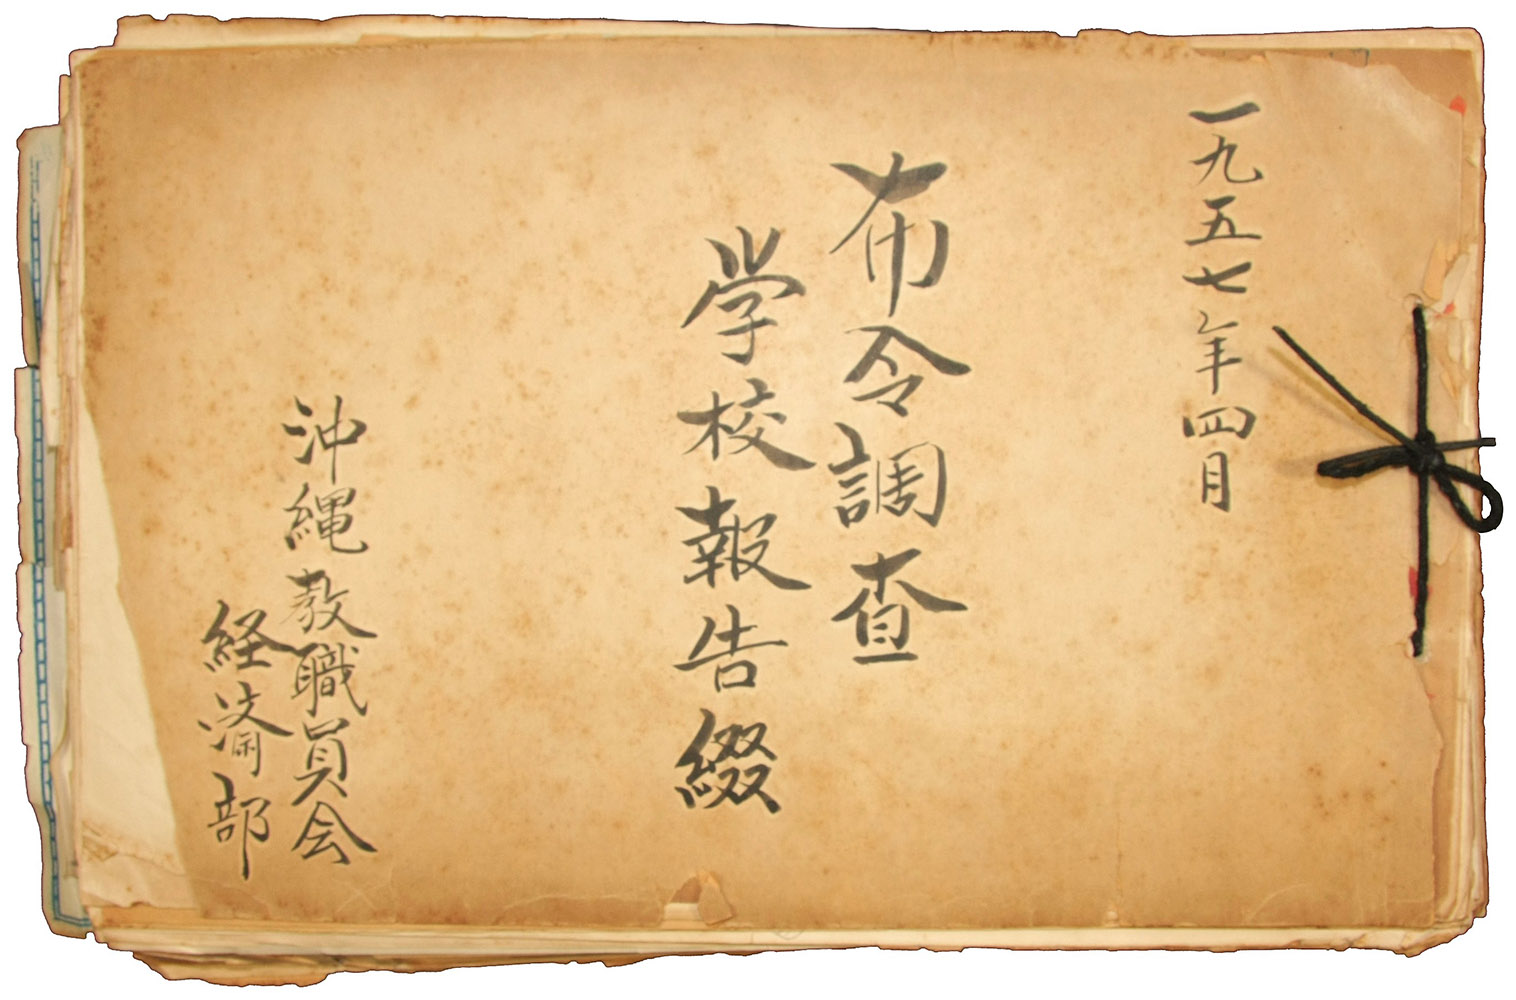 一九五七年四月
布令調査
学校報告綴
沖縄教職員会
経済部